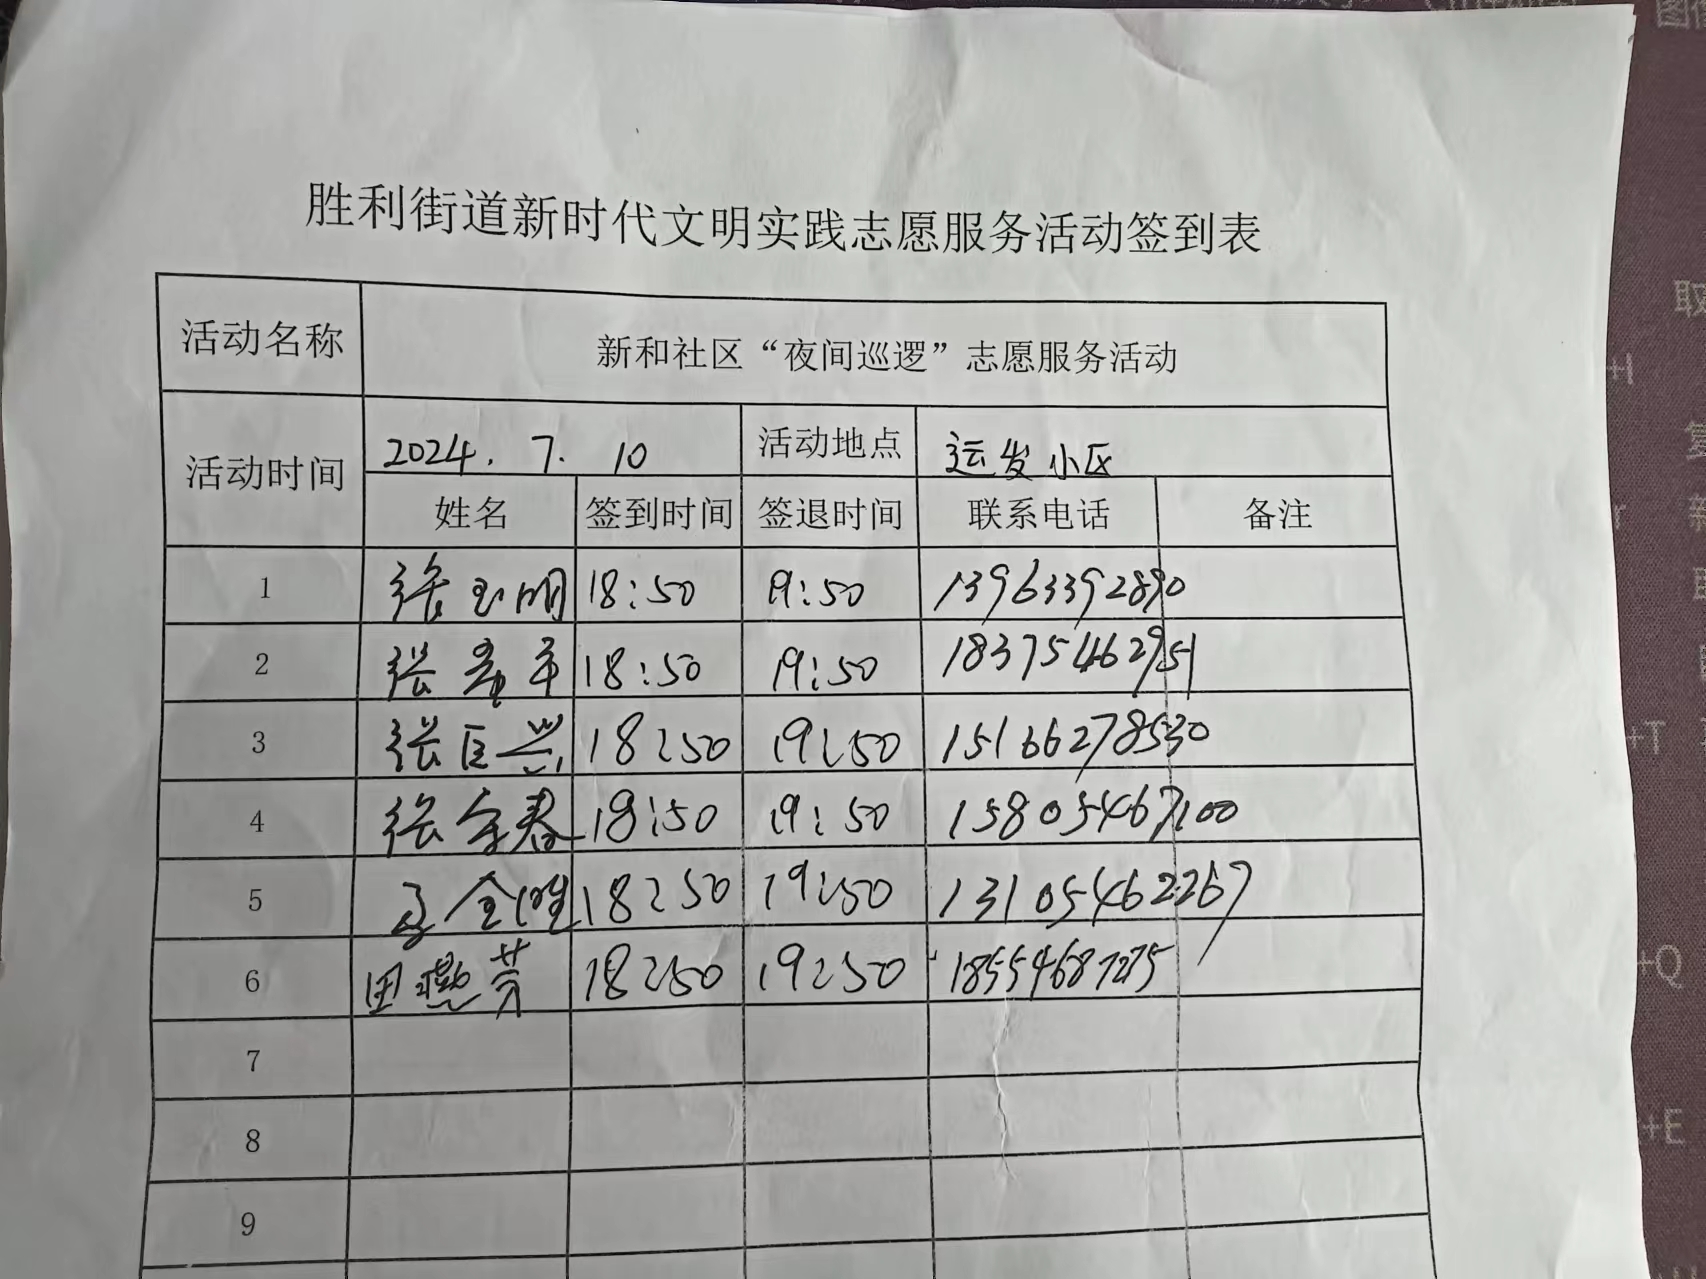 胜利街道新时代文明实践志愿服务活动签到表
活动名称 新和社区“夜间巡逻”志愿服务活动
活动时间 2024.7.10 活动地点 运发小区
姓名 签到时间 签退时间 联系电话 备注
1 张玉明 18:50 19:50 13963392890
2 张寿军 18:50 19:50 18375462951
3 张巨兴 18:50 19:50 15166278530
4 张金春 18:50 19:50 15805467100
5 孟全胜 18:50 19:50 13105462267
6 田燕芳 18:50 19:50 18554687275
7
8
9
取
+T
+Q
+E